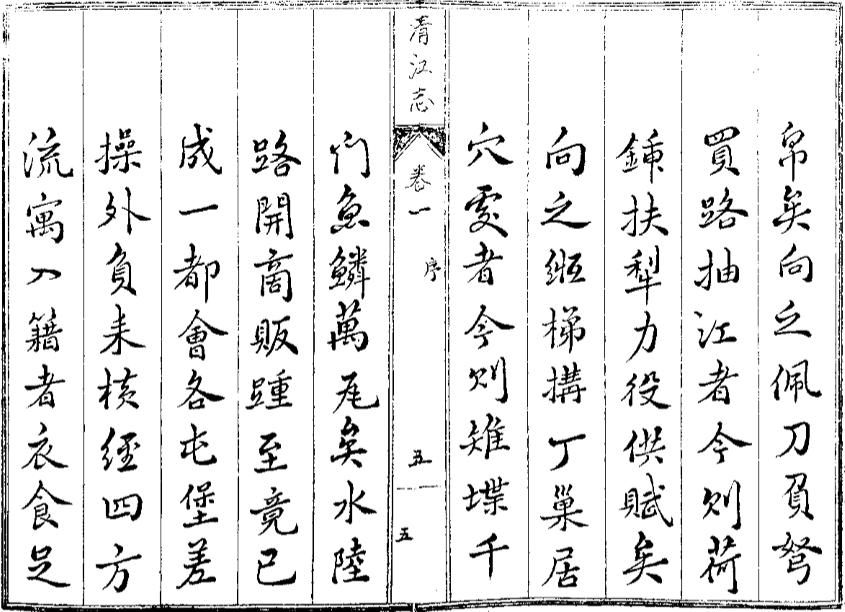 帛矣向之佩刀負弩
買路抽江者今則荷
鍤扶犁力役供賦矣
向之絙梯搆丁巢居
穴處者今則雉堞千
清江志 卷一 序 五 五
門魚鱗萬瓦矣水陸
路開商販踵至竟已
成一都會各屯堡差
操外負耒橫經四方
流寓入籍者衣食足